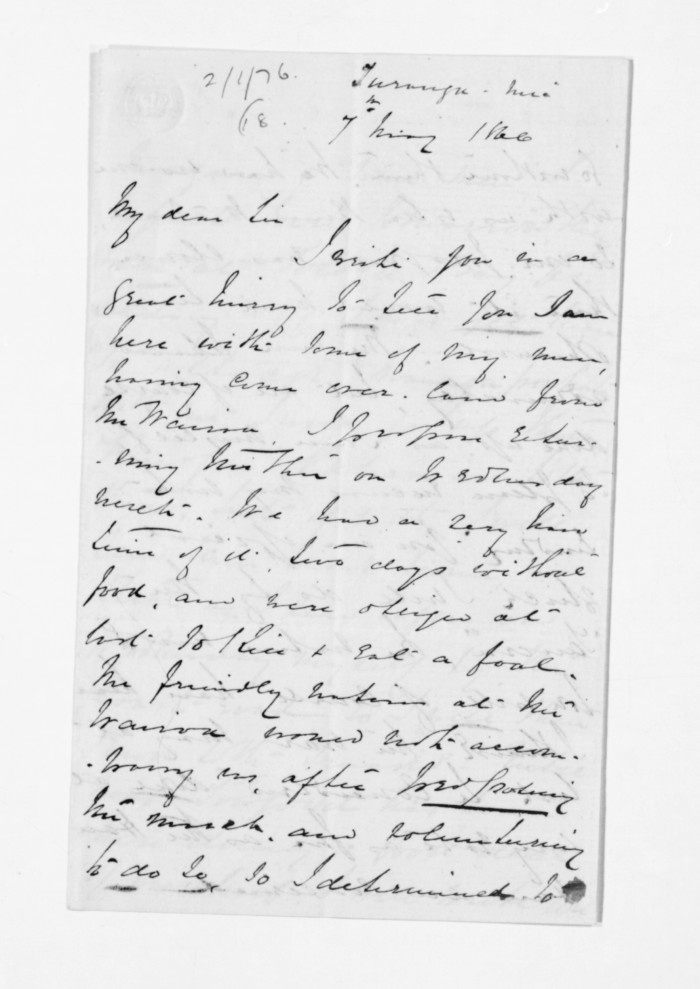 2/1/76.
(18.
Turanga - nui
7th May 1866
My dear Sir
I write you in a
great hurry to tell you I am
here with some of my men,
having come over land from
the Wairoa. I propose retur-
-ning thither on Wednesday
next. We had a very hard
time of it, two days without
food, and were obliged at
last to kill & eat a foal.
The friendly natives at the
Wairoa would not accom-
-pany us, after proposing
the march, and volunteering
to do so, so I determined to